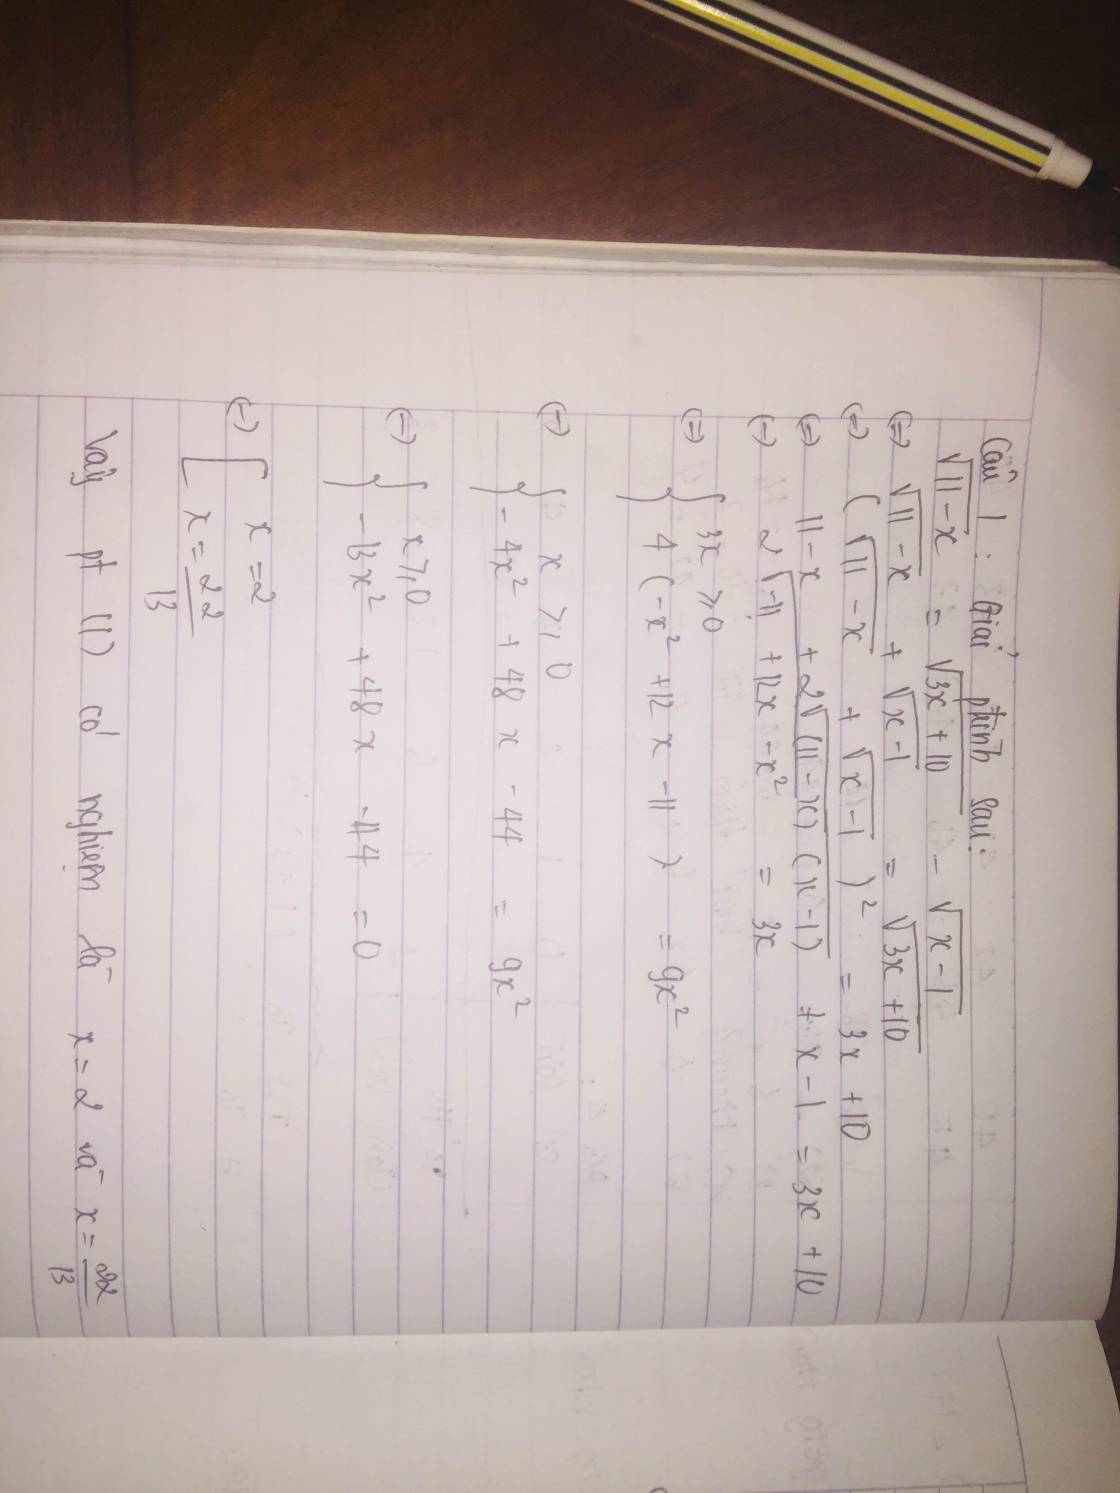 Câu 1 : Giải ptrình sau:
√11-x = √3x+10 - √x-1
(=) √11-x + √x-1 = √3x+10
(=) (√11-x + √x-1)² = 3x+10
(=) 11-x + 2√(11-x)(x-1) + x-1 = 3x+10
(=) 2√-11+12x-x² = 3x
(=) { 3x ≥ 0
4(-x²+12x-11) = 9x²
(=) { x ≥ 0
-4x² + 48x - 44 = 9x²
(=) { x ≥ 0
-13x² + 48x - 44 = 0
(=) [ x = 2
x = 22/13
Vậy pt (1) có nghiệm là x = 2 và x = 22/13